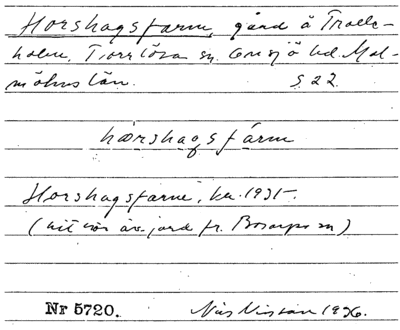 Horshagsfarm, gård å Trolle-
holm, Torrlösa sn. Onsjö hd. Mal-
möhus län. S 22.
hœrshagsfárm
Horshagsfarm, ka. 1931.
(hit hör äv. jord fr. Bosarps sn)
Nr 5720. Nils Nilsson 1936.